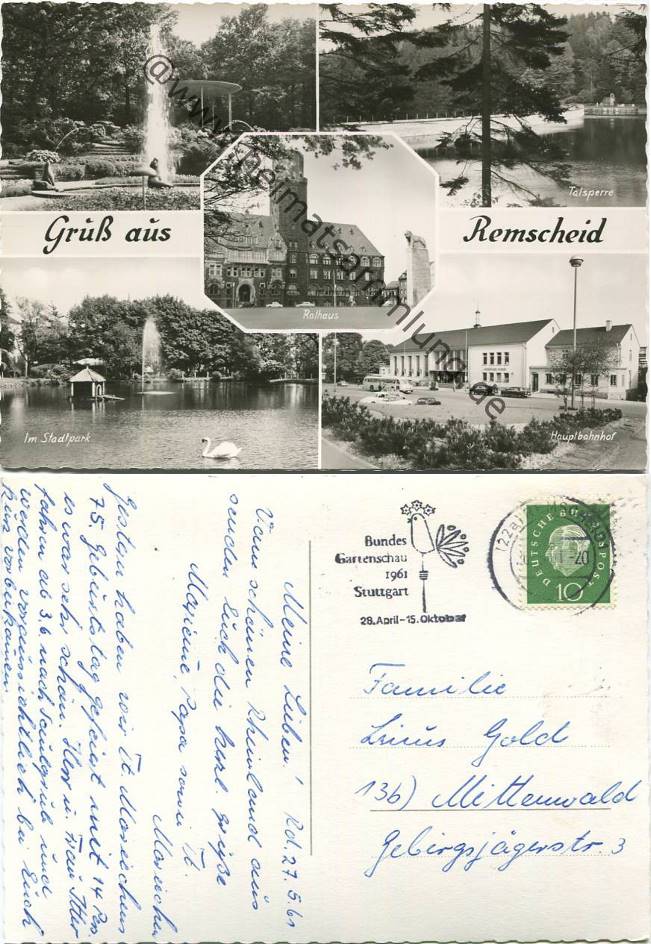 Gruß aus
Remscheid
Talsperre
Rathaus
Im Stadtpark
Hauptbahnhof
@www.heimatsammlung.de
Meine Lieben! Rd. 27.5.61
Vom schönen Rheinland aus
senden Euch die herzl. Grüße
Papa
Gestern haben wir Tt.
75. Geburtstag gefeiert mit 14 Pers
es war sehr schön. Herr u. Frau
fahren ab 3.6. nach und
werden voraussichtlich bei Euch
kurz vorbeikommen.
Bundes
Gartenschau
1961
Stuttgart
28. April - 15. Oktober
(22a)
DEUTSCHE BUNDESPOST
10
Familie
Linus Gold
13b) Mittenwald
Gebirgsjägerstr. 3